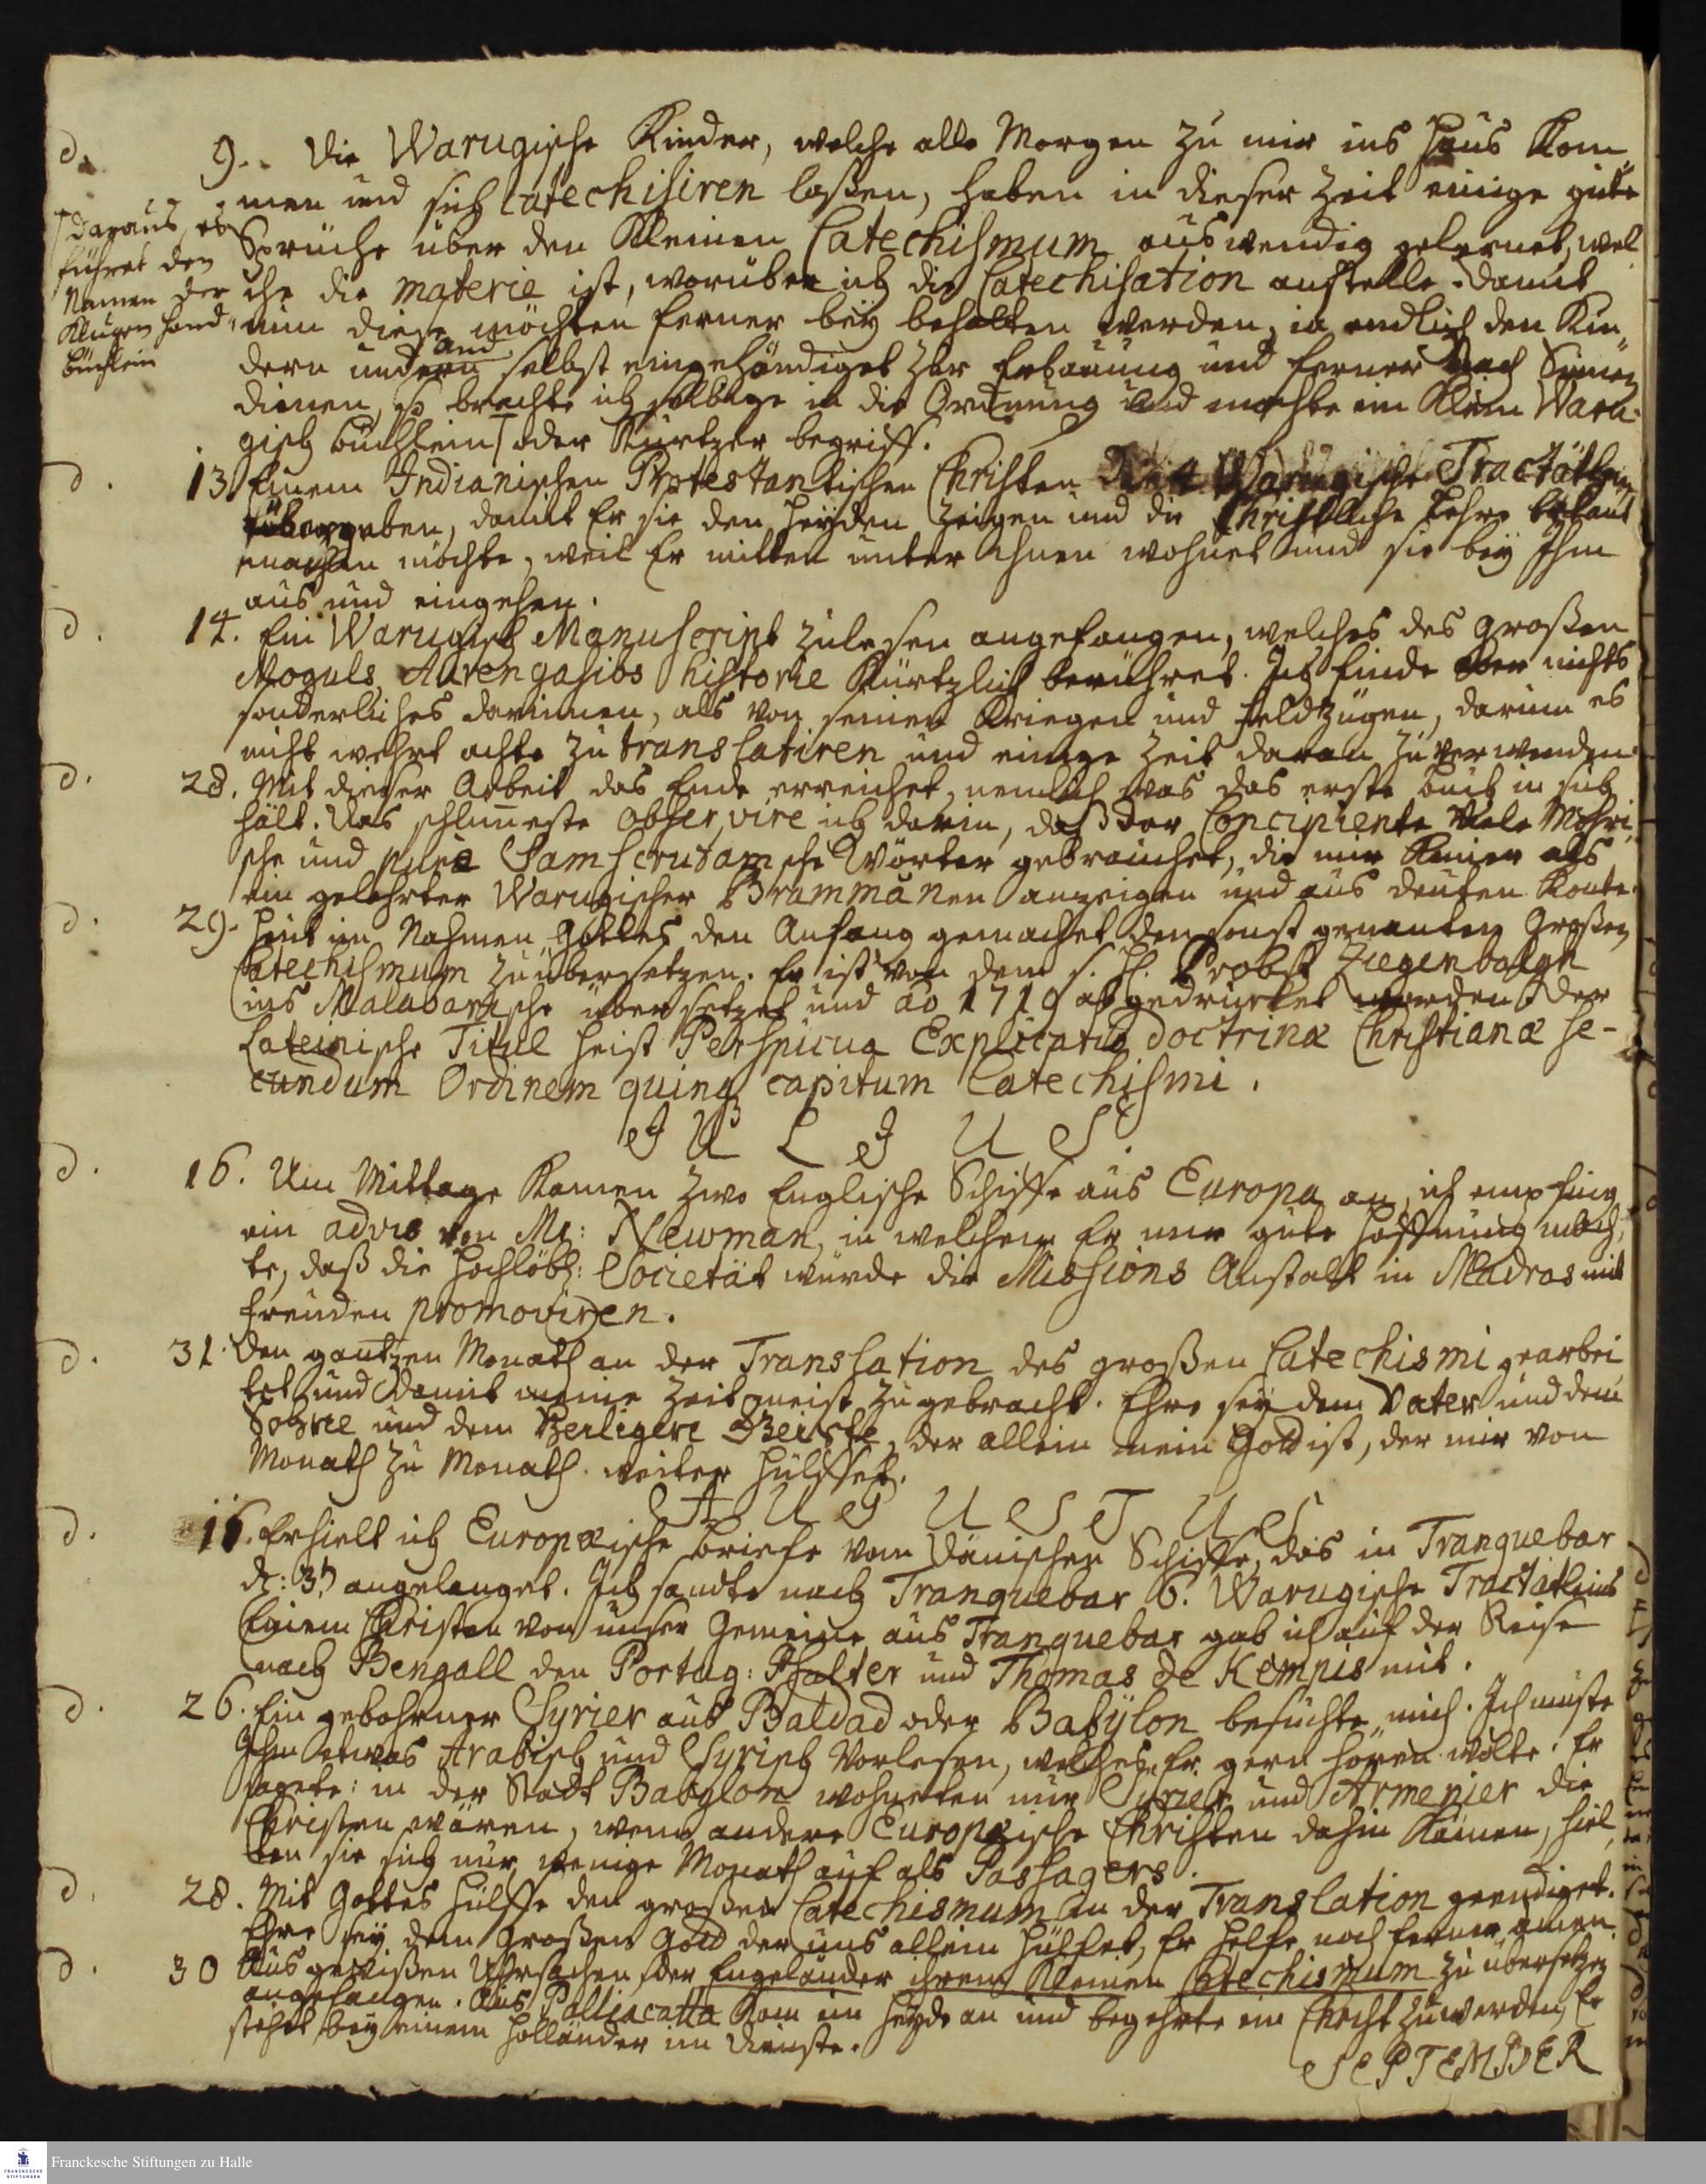 d. 9. Die Warugische Kinder, welche alle Morgen zu mir ins Haus kom-
men und sich catechisiren laßen, haben in dieser Zeit einige gute
Sprüche über den Kleinen Catechismum auswendig gelernet, wel-
che die materie ist, worüber ich die Catechisation anstelle. Damit
nun diese möchten ferner bey behalten werden, ja endlich den Kin-
dern und andern selbst eingehändiget zur Erbauung und ferner Nach Sinnen
dienen, so brachte ich selbige in die Ordnung und machte ein klein Waru-
gisch büchlein oder Kurtzer begriff.
daraus, es
führet den
Namen der
Klugen Hand-
büchlein
d. 13 Einem Indianischen Protestantischen Christen Warugische Tractätlein
übergeben, damit Er sie den Heyden zeigen und die Christliche Lehre bekant
machen möchte, weil Er mitten unter ihnen wohnet und sie bey Ihm
aus und eingehen.
d. 14. Ein Warugisch Manuscript zulesen angefangen, welches des großen
Moguls Aurengasibs historie kürtzlich berühret. Ich finde aber nichts
sonderliches darinnen, als von seinen Kriegen und Feldzügen, darum es
nicht wehrt achte zu translatiren und einige Zeit daran zu verwenden.
d. 28. Mit dieser Arbeit das Ende erreichet, nemlich was das erste buch in sich
hält. Das schlimmeste observire ich darin, daß der Concipiente viele Mohri-
sche und pure Samscrutamsche Wörter gebrauchet, die mir keiner als
ein gelehrter Warugischer Brammanen anzeigen und aus deuten konte.
d. 29. Heut im Nahmen Gottes den Anfang gemachet den sonst genanten Großen
Catechismum zu übersetzen. Er ist von dem s. H. Probst Ziegenbalgh
ins Malabarische übersetzet und ao 1719 abgedrucket worden. der
Lateinische Titul heist Perspicua Explicatio doctrinæ Christianæ se-
cundum Ordinem quinq capitum Catechismi.
JULJUS.
d. 16. Um Mittage kamen zwo Englische Schiffe aus Europa an, ich empfing
ein advis von Mr: Newman, in welchem Er mir gute Hoffnung mach-
te, daß die Hochlöbl: Societät würde die Missions Anstalt in Madras mit
freuden promoviren.
d. 31. Den gantzen Monath an der Translation des großen Catechismi gearbei-
tet und damit meine Zeit meist zugebracht. Ehre sey dem Vater und dem
Sohne und dem Heiligen Geiste, der allein mein Gott ist, der mir von
Monath zu Monath weiter hülffet.
AUGUSTUS
d. 16. Erhielt ich Europæische briefe vom Dänischen Schiffe, das in Tranquebar
d: 3t angelanget. Ich sandte nach Tranquebar 6. Warugische Tractätleins
Einem Christen von unser Gemeine aus Tranquebar gab ich auf der Reise
nach Bengall den Portug: Psalter und Thomas de Kempis mit.
d. 26. Ein gebohrner Syrier aus Baldad oder Babÿlon besuchte mich. Ich muste
Ihm etwas Arabisch und Syrisch vorlesen, welches Er gern hören wolte. Er
sagete: in der Stadt Babylon wohneten nur Syrier und Armenier die
Christen wären, wenn andere Europæische Christen dahin kämen, hiel-
ten sie sich nur wenige Monath auf als Passagers.
d. 28. Mit Gottes Hülffe den großen Catechismum in der Translation geendiget.
Ehre sey dem großen Gott der uns allein hülfet, Er helfe noch ferner, amen.
d. 30 Aus gewißen Uhrsachen, der Engeländer ihren Kleinen Catechismum zu übersetzen
angefangen. Aus Palliacatta kam ein Heyde an und begehrte ein Christ zu werden, Er
stehet bey einem Holländer im Dienste.
SEPTEMBER
Franckesche Stiftungen zu Halle